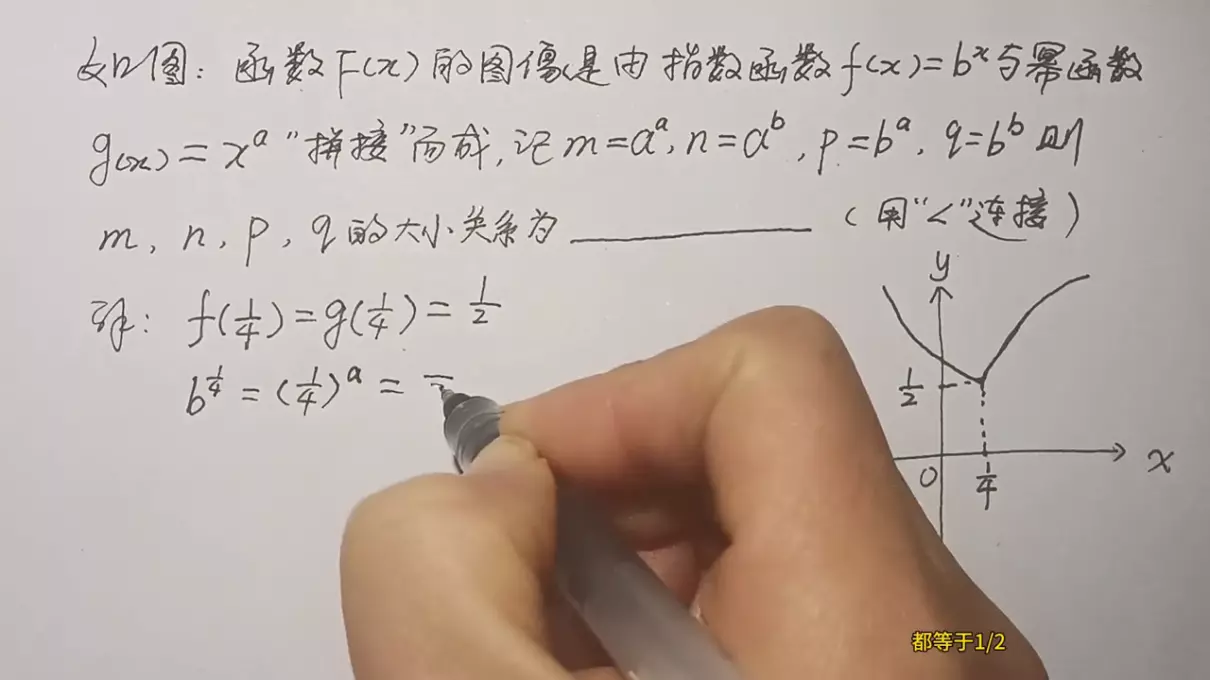 如图：函数F(x)的图像是由指数函数f(x)=bˣ与幂函数
g(x)=xᵃ"拼接"而成,记m=aᵃ,n=aᵇ,p=bᵃ,q=bᵇ则
m,n,p,q的大小关系为__________(用"<"连接)
解：f(1/4)=g(1/4)=1/2
b^(1/4)=(1/4)ᵃ=
y
1/2
0
1/4
x
都等于1/2